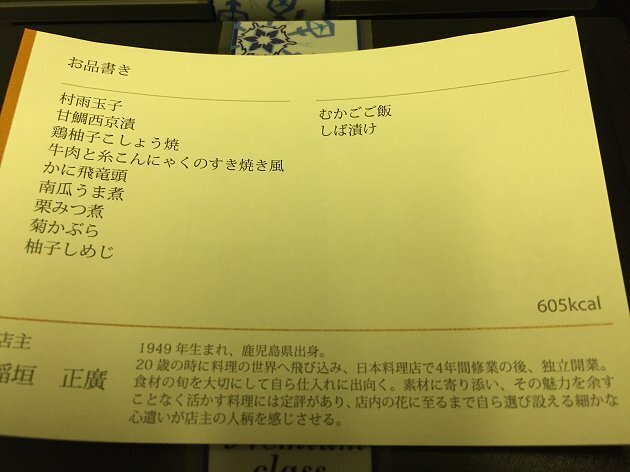 お品書き
村雨玉子
甘鯛西京漬
鶏柚子こしょう焼
牛肉と糸こんにゃくのすき焼き風
かに飛竜頭
南瓜うま煮
栗みつ煮
菊かぶら
柚子しめじ
むかごご飯
しば漬け
605kcal
店主
稲垣 正廣
1949年生まれ、鹿児島県出身。
20歳の時に料理の世界へ飛び込み、日本料理店で4年間修業の後、独立開業。
食材の旬を大切にして自ら仕入れに出向く。素材に寄り添い、その魅力を余す
ことなく活かす料理には定評があり、店内の花に至るまで自ら選び設える細かな
心遣いが店主の人柄を感じさせる。
Premium
class